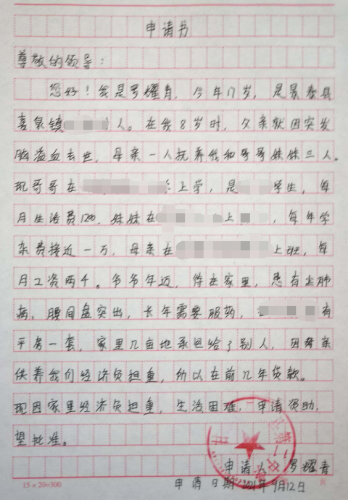 申请书
尊敬的领导：
您好！我是罗耀青，今年17岁，是景泰县
喜泉镇人。在我8岁时，父亲就因突发
脑溢血去世，母亲一人抚养我和哥哥妹妹三人。
现哥哥在上学，是学生，每
月生活费1200，妹妹在上，每年学
杂费接近一万，母亲在上班，每
月工资两千。爷爷年迈，待在家里，患有
病，腰间盘突出，长年需要服药，有
平房一套，家里几亩地承包给了别人，因母亲
供养我们经济负担重，所以在前几年贷款。
现因家里经济负担重，生活困难，申请资助，
望批准。
申请人：罗耀青
申请日期：年9月12日
15×20=300